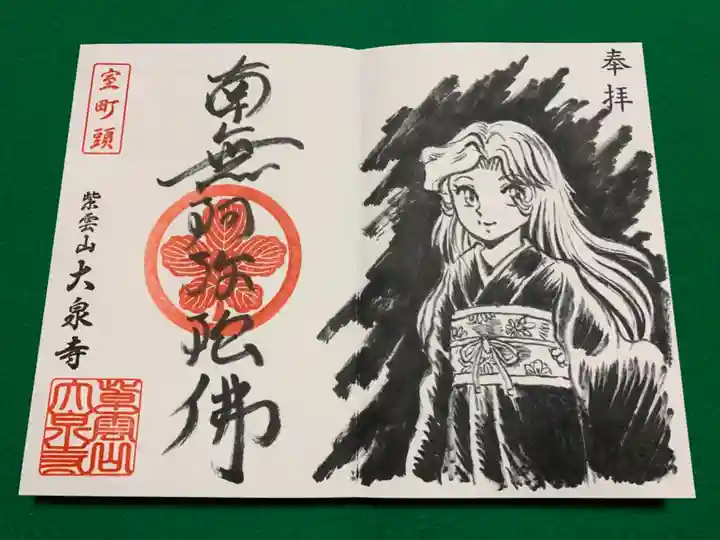 奉拝
南無阿弥陀佛
室町頭
紫雲山 大泉寺
紫雲山
大泉寺